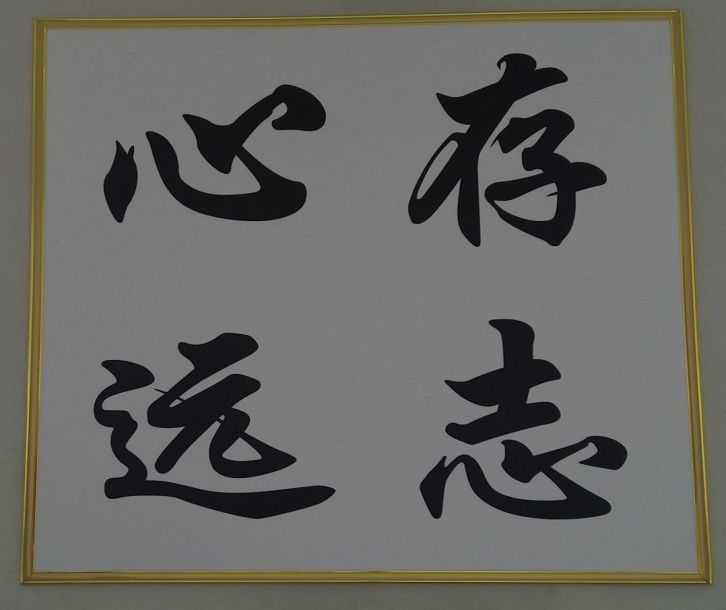 存志
心远